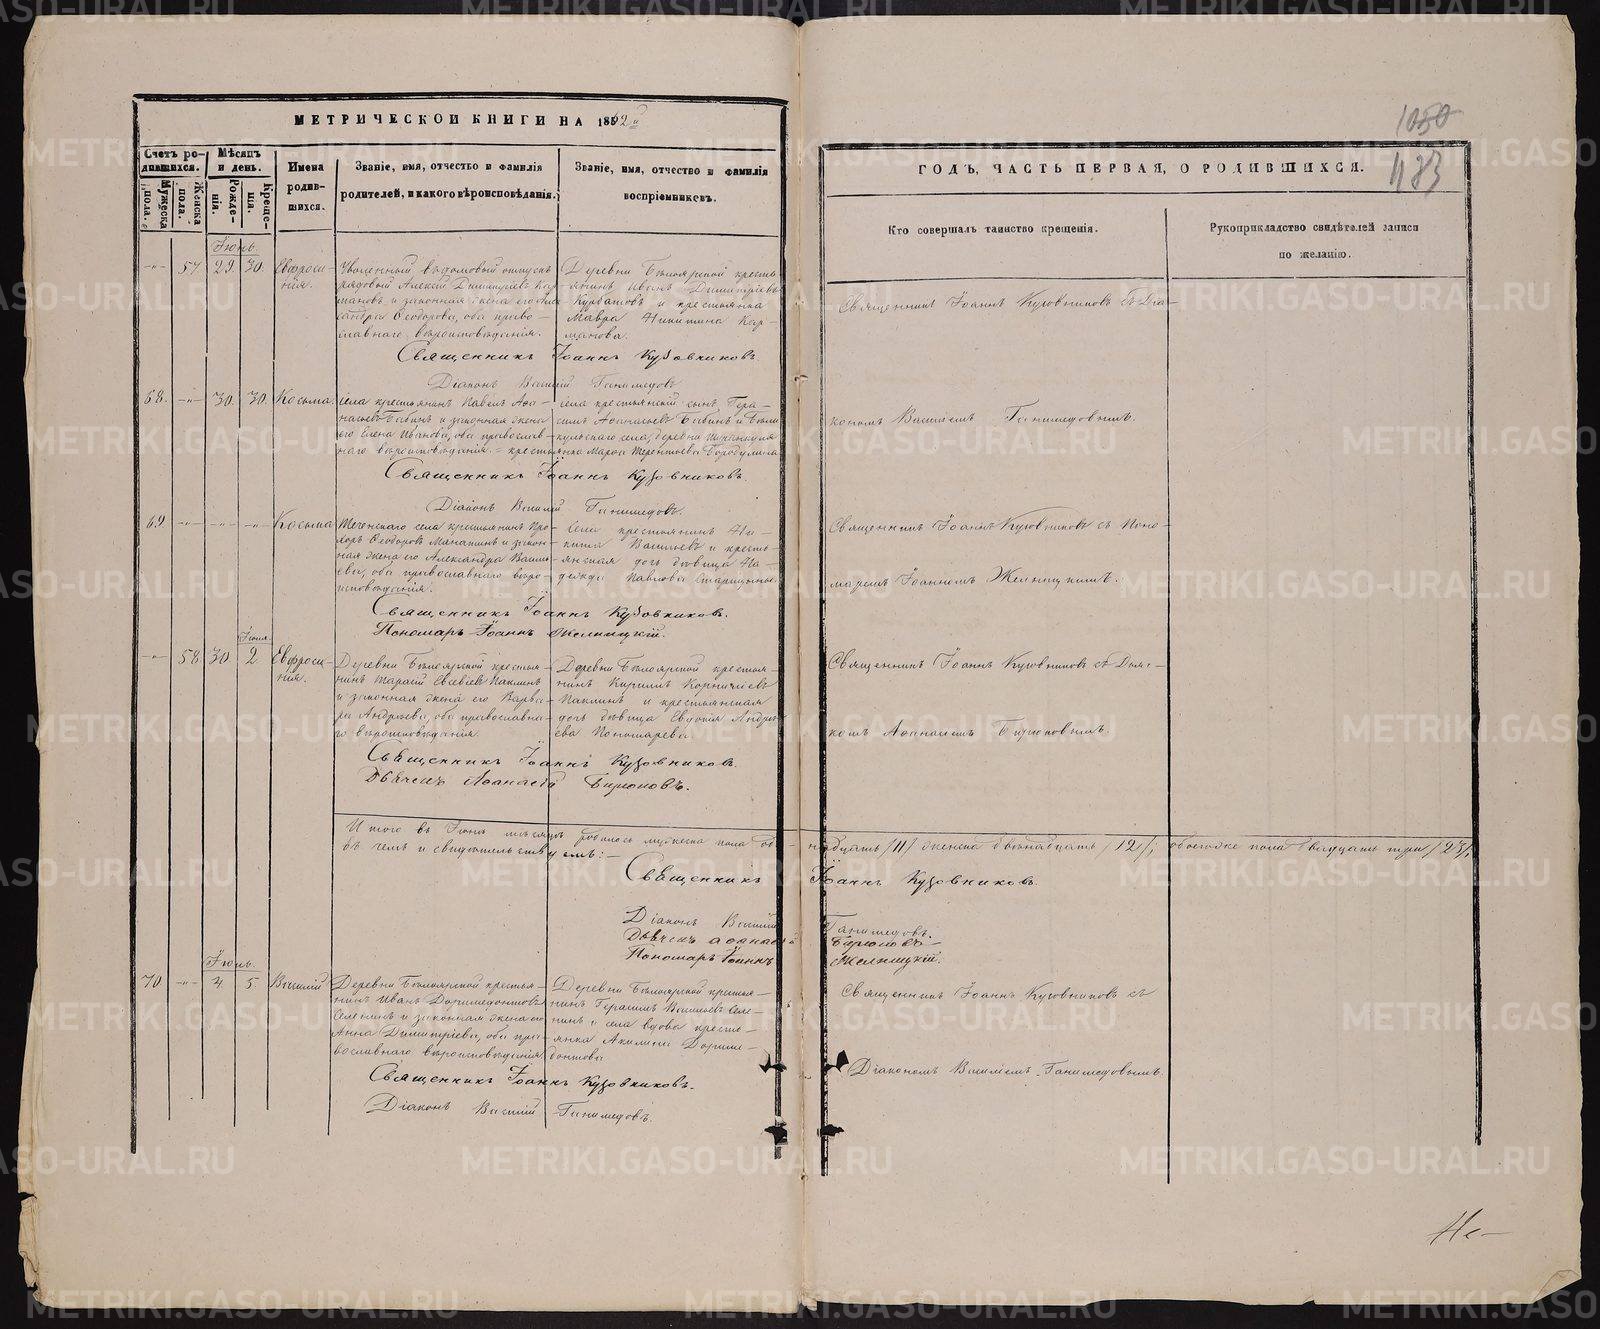 МЕТРИЧЕСКОЙ КНИГИ НА 1862й
Счетъ родившихся.
Мѣсяцъ и день.
Имена родившихся.
Званіе, имя, отчество и фамилія родителей, и какого вѣроисповѣданія.
Званіе, имя, отчество и фамилія воспріемниковъ.
Мужеска пола.
Женска пола.
Рожденія.
Крещенія.
Іюнь.
57 29. 30. Евфросинія.
рядовый Алексій Димитріевъ Кармановъ и законная жена его Александра Ѳеодорова, оба православнаго вѣроисповѣданія.
Деревни Бѣлоярской крестьянинъ Иванъ Димитріевъ Курбатовъ и крестьянка Мавра Никитина Карманова.
Священникъ Іоаннъ Кузовниковъ.
Діаконъ Василій Ганимедовъ
68. 30. 30. Косьма.
села крестьянинъ Павелъ Аѳанасьевъ Бабинъ и законная жена его Елена Иванова, оба православнаго вѣроисповѣданія.
села крестьянскій сынъ Герасимъ Аѳанасьевъ Бабинъ и
села, деревни крестьянка Марѳа Терентьева Бородулина
Священникъ Іоаннъ Кузовниковъ.
Діаконъ Василій Ганимедовъ.
69. Косьма
Теченскаго села крестьянинъ Ѳеодоровъ и законная жена его Александра Васильева, оба православнаго вѣроисповѣданія.
Села крестьянинъ Никита Васильевъ и крестьянская дочь дѣвица Надежда Павлова
Священникъ Іоаннъ Кузовниковъ.
Пономарь Іоаннъ Желницкій.
Іюля
58 30. 2 Евфросинія.
Деревни Бѣлоярской крестьянинъ Тарасій Евсевіевъ Паклинъ и законная жена его Варвара Андреева, оба православнаго вѣроисповѣданія.
Деревни Бѣлоярской крестьянинъ Кириллъ Корниліевъ Паклинъ и крестьянская дочь дѣвица Евдокія Андреева Пономарева.
Священникъ Іоаннъ Кузовниковъ.
Дьячекъ Аѳанасій Бирюковъ.
Итого въ Іюнѣ мѣсяцѣ родилось мужеска пола од-
въ чемъ и свидѣтельствуемъ:-
Священникъ
Діаконъ Василій
Дьячекъ Аѳанасій
Пономарь Іоаннъ
Іюль.
70 4. 5. Василій
Деревни Бѣлоярской крестьянинъ Иванъ Доримедонтовъ Селенинъ и законная жена его Анна Димитріева, оба православнаго вѣроисповѣданія
Деревни Бѣлоярской крестьянинъ Герасимъ Васильевъ Селенинъ и села вдова крестьянка Акилина Доримедонтова
Священникъ Іоаннъ Кузовниковъ.
Діаконъ Василій Ганимедовъ.
1050
483
ГОДЪ, ЧАСТЬ ПЕРВАЯ, О РОДИВШИХСЯ.
Кто совершалъ таинство крещенія.
Рукоприкладство свидѣтелей записи по желанію.
Священникъ Іоаннъ Кузовниковъ съ Діа-
кономъ Василіемъ Ганимедовымъ.
Священникъ Іоаннъ Кузовниковъ съ Поно-
маремъ Іоанномъ Желницкимъ.
Священникъ Іоаннъ Кузовниковъ съ Дьяч-
комъ Аѳанасіемъ Бирюковымъ.
надцать /11/ женска двѣнадцать /12/; обоегоже пола двадцать три /23/,
Іоаннъ Кузовниковъ.
Ганимедовъ.
Бирюковъ
Желницкій.
Священникъ Іоаннъ Кузовниковъ съ
Діакономъ Василіемъ Ганимедовымъ.
METRIKI.GASO-URAL.RU